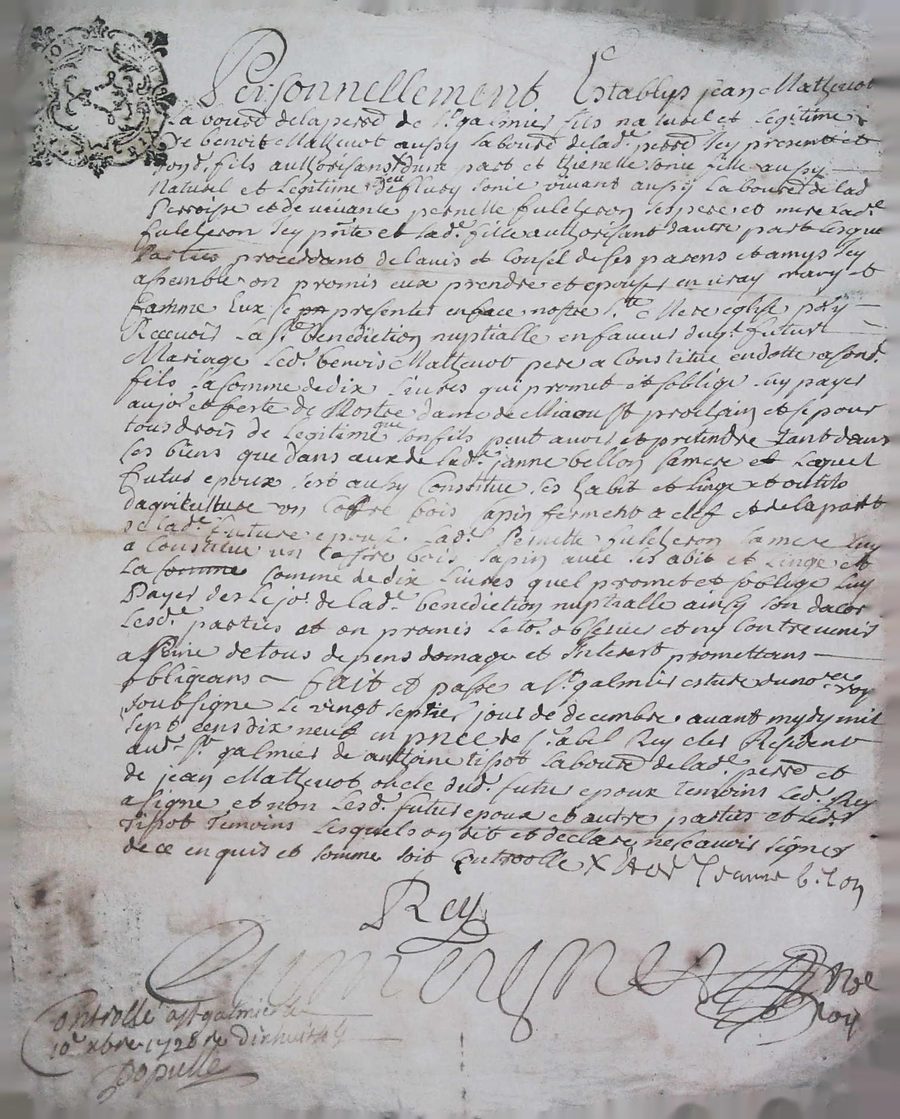 Personnellement Establys jean Mathevot
Laboure de la perre de st galmier fils naturel et Legitime
De benoit Mathevot aussy Laboure de lade perre Icy present et
sond fils authorisant dune part et thienette fille aussy
Naturel et Legitime deffunt vivant aussy Laboure de lad
Perroisse et de vivante pernette fulcheron ses pere et mere Lade
fulcheron Icy pnte et lade fille authorisant dautre part lesquel
Parties procedant de lavis et Conseil de ses parens et amys Icy
assemble on promis eux prendre et epouser en vray mary et
famme Eux se presenter en face nostre ste Mere eglise pour y
Recevoir La ste benediction nuptialle en faveur du futur
Mariage Led benoit Mathevot pere a Constitue en dotte a sond
fils La somme de dix Livres qui promet et soblige luy payer
au jor et feste de Nostre dame de Miaoust prochain et ce pour
tous drois de Legitime que son fils peut avoir et pretendre tant dans
Ses biens que dans ceux de lade janne bellon sa mere et Lequel
futur epoux sest aussy Constitue ses habit et linge et outils
dagriculture un Coffre bois sapin ferment a clef et de la part
de lade future epouse Lade Pernette fulcheron sa mere luy
a Constitue un Coffre bois sapin avec ses abit et Linge et
La somme Somme de dix Livres quel promet et soblige luy
Payer des le jor de lade benediction nuptialle ainsy son dacor
Lesde parties et on promis observer et ny Contrevenir
a Peine de tous depens domage et Interest promettans
obligeans fait et passe a st galmier estude du nore roy
soubsigne Le vingt septie jour de decembre avant mydy mil
sept cens dix neuf en pnce de sr abel Rey clerc Resident
aud st galmier de anthoine tissot Laboure de lade perre et
de jean Mathevot oncle dud futur epoux Temoins Led Rey
a signe et non Lesd futur epoux et autre parties et led
tissot Temoins Lesquels on dit et declare ne scavoir signer
de ce enquis et somme soit Controolle X Jeanne bellon
Rey
Nore
Roy
Controlle a st galmier le
10e xbre 1728 dixhuit s
Populle